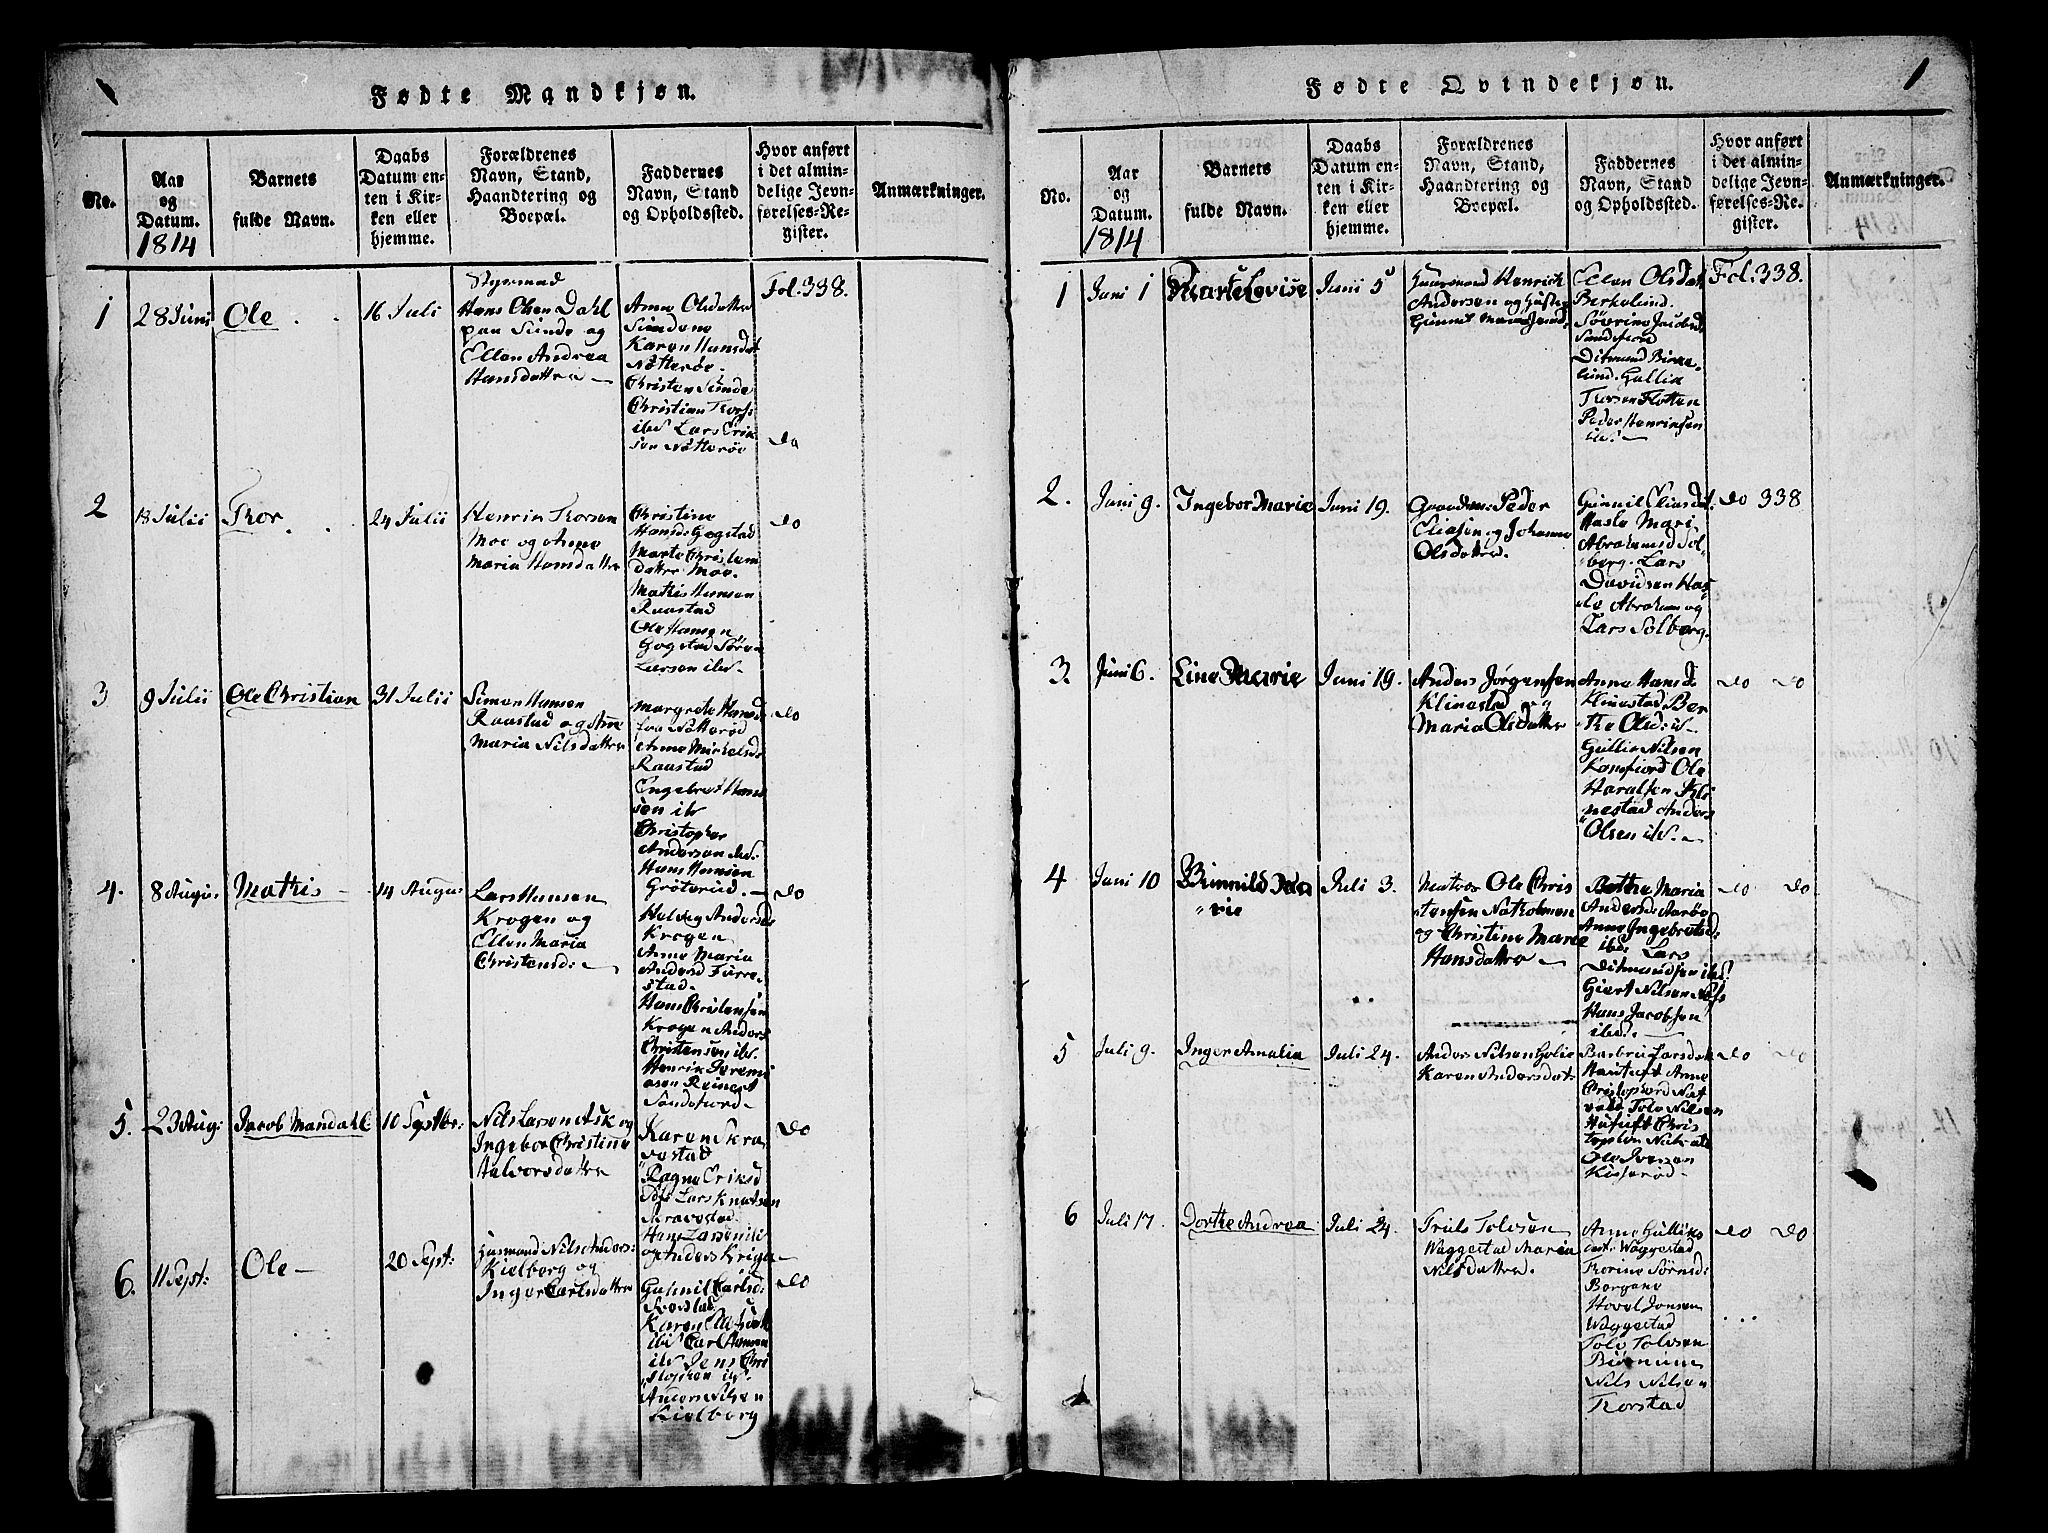 Fødte Mandkjøn.
No.
Aar
og
Datum.
1814
Barnets
fulde Navn.
Daabs
Datum en-
ten i Kir-
ken eller
hjemme.
Forældrenes
Navn, Stand,
Haandtering og
Boepæl.
Faddernes
Navn, Stand
og Opholdssted.
Hvor anført
i det almin-
delige Jevn-
førelses-Re-
gister.
Anmærkninger.
1
28 Juni
Ole
16 Juli
Styrmad
Hans Olsen Dahl
paa Sünde og
Ellen Andrea
Hansdattre
Anne Olsdatter
Karen Hansdat
Nötteröe
Christen Sünde
Christian Tros
ibd Lars Erik
sen Nötteröe
Fol. 338.
do
2
18 Julii
Thor
24 Julii
Henrik Thorsen
Moe og Anne
Maria Hansdatter
Christine
Hansd: Gogstad
Marte Christen
datter Moe.
Mathis Hansen
Raastad
Ole Hansen
Gogstad Sören
Larsen ibd.
do
3
9 Julii
Ole Christian
31 Julii
Simon Hansen
Raastad og Anne
Maria Nilsdatter
Margrete Hansd
Nötteröe
Anne Mickelsd
Raastad
Engebret Han
sen ib
Christopher
Andersen ibd.
Hans Hansen
do
4.
8 Augu.
Mathis
14 Augu.
Lars Hansen
Krogen og
Ellen Maria
Christensd:
Helvig Andersd
Krogen
Anne Maria
Andersd Furre
stad.
Hans Christensen
Krogen Anders
Christensen ibd.
Henrik Jeremi
asen
Sandefiord
do
5.
23 Aug:
Jacob Mandahl
10 Septbr:
Nils Larsen Ask og
Ingebor Christine
Halvorsdatter
Karen Skra
vestad
Ragne Eriksd
Lars Knutsen
Skravestad
Hans Larsen ibd
og Anders Krüge
do
6.
11 Sept:
Ole
20 Sept:
Husmand Nils Anders:
Kielberg og
Inger Carlsdatter
Gunnil Carlsd:
Karen
ibd Carl Hansen
ibd Jens Chri
stophen ibd.
Anders Nilsen
Kielberg
do
1
Fødte Qvindekjøn.
No.
Aar
og
Datum.
1814
Barnets
fulde Navn.
Daabs
Datum en-
ten i Kir-
ken eller
hjemme.
Forældrenes
Navn, Stand,
Haandtering og
Boepæl.
Faddernes
Navn, Stand
og Opholdssted.
Hvor anført
i det almin-
delige Jevn-
førelses-Re-
gister.
Anmærkninger.
1
Juni 1
Marte Lovise
Junii 5
Gaarmand Henrich
Andersen og
Gunnil Maria
Ellen Olsdat
Berkelund.
Sövrine Jacobsd
Sandefiord
Ditmand Birke
lund. Gullik
Thorsen Flotten
Peder Henriksen
ibd.
Fol. 338.
2.
Juni 9.
Ingebor Marie
Juni 19.
Peder
Eliasen og Johanne
Olsdatter.
Gunnil Eliasdt.
Hasle Mari
Abrahamsd Sol
berg. Lars
Davidsen Has
le Abraham og
Lars Solberg.
do 338
3.
Juni 6.
Line Marie
Juni 19.
Anders Jörgensen
Klinestad og
Maria Olsdatter
Anne Hansd
Klinestad Ber
the Olsd: ib
Gullik Nilsen
Kamfiord Ole
Haralsen Kli
nestad Anders
Olsen ibd.
do do
4
Juni 10
Brunnild Ma
rie
Juli 3.
Matros Ole Chris
tensen Natholmen
og Christine Marie
Hansdatter
Berthe Maria
Andersd: Aaröe
Anne Ingebretsd:
ibd. Lars
Ditmandsen ibd.
Giert Nilsen Næs
Hans Jacobsen
ibd.
do do
5
Juli 9.
Inger Amalia
Juli 24.
Anders Nilsen Holie
Karen Andersdat:
Barbru Larsdat
Anne
Tolv Nilsen
Chris
Ole Iversen
do do
6
Juli 17.
Dorthe Andrea
Juli 24.
Truls Tolvsen
Wäggestad Maria
Nilsdatter.
Anne Gulliks
dat: Wäggestad
Thorine Sörensd:
Bergene
Hovel Jonsen
Wäggestad
Tolv Tolvsen
Biörnum
Nils Nilsen
Thorstad
do do